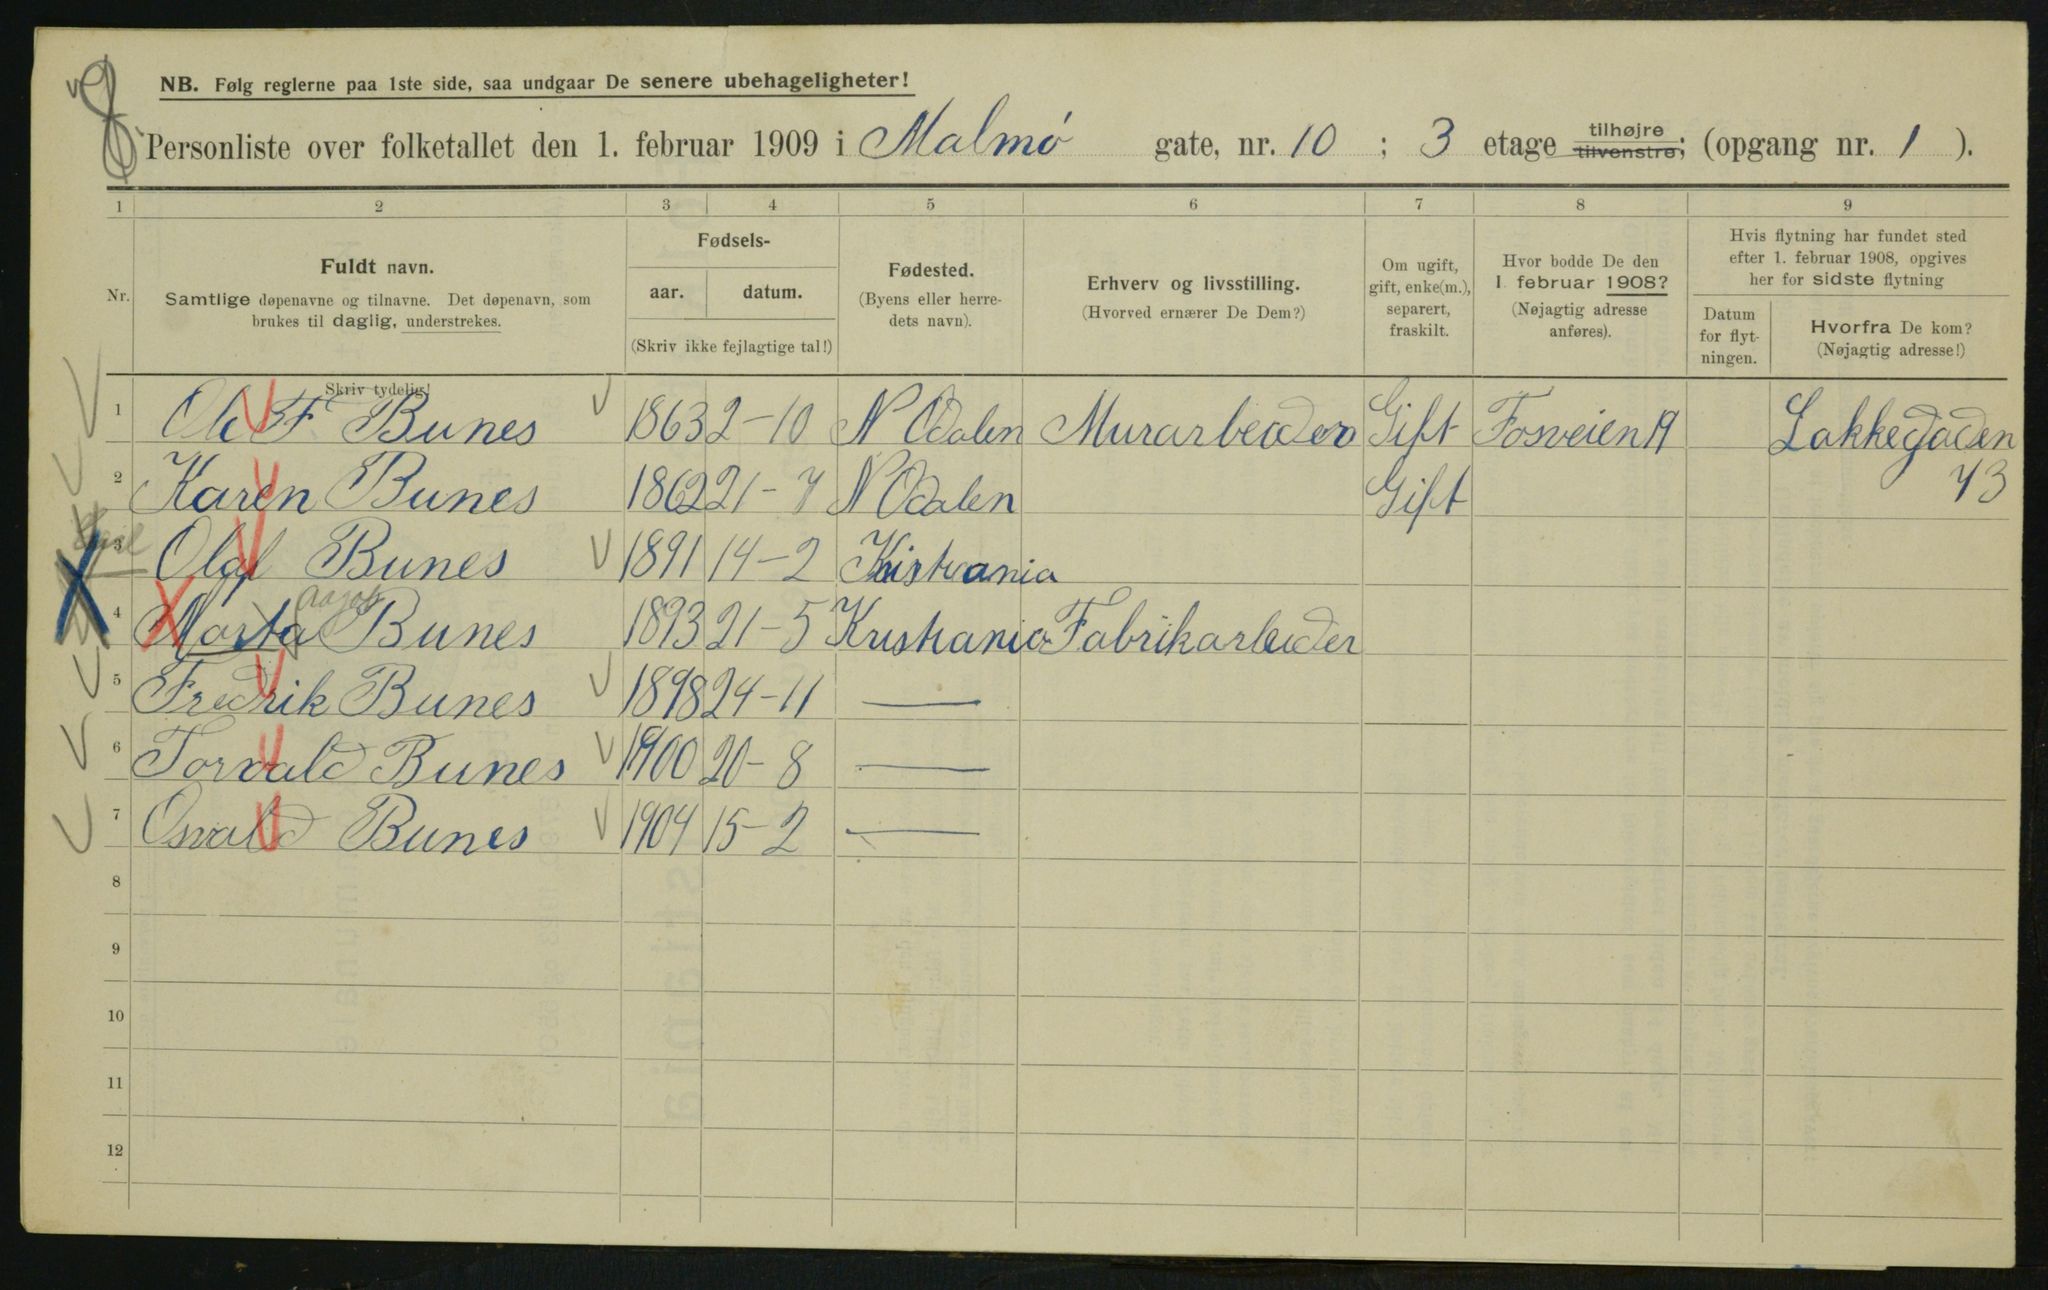 NB. Følg reglerne paa 1ste side, saa undgaar De senere ubehageligheter!
Personliste over folketallet den 1. februar 1909 i Malmø gate, nr. 10 ; 3 etage tilhøjre tilvenstre; (opgang nr. 1 ).
1 2 3 4 5 6 7 8 9
Nr.
Fuldt navn.
Samtlige døpenavne og tilnavne. Det døpenavn, som
brukes til daglig, understrekes.
Skriv tydelig!
Fødsels-
aar. datum.
(Skriv ikke fejlagtige tal!)
Fødested.
(Byens eller herre-
dets navn).
Erhverv og livsstilling.
(Hvorved ernærer De Dem?)
Om ugift,
gift, enke(m.),
separert,
fraskilt.
Hvor bodde De den
1 februar 1908?
(Nøjagtig adresse
anføres).
Hvis flytning har fundet sted
efter 1. februar 1908, opgives
her for sidste flytning
Datum
for flyt-
ningen.
Hvorfra De kom?
(Nøjagtig adresse!)
1 Ole F Bunes 1863 2-10 N Odalen Murarbeider Gift Fosveien 19 Lakkegaden
73
2 Karen Bunes 1862 21-7 N Odalen Gift
3 Olaf Bunes 1891 14-2 Kristiania
4 Marta Bunes 1893 21-5 Kristiania Fabrikarbeider
5 Fredrik Bunes 1898 24-11 —
6 Torvald Bunes 1900 20-8 —
7 Osvald Bunes 1904 15-2 —
8
9
10
11
12